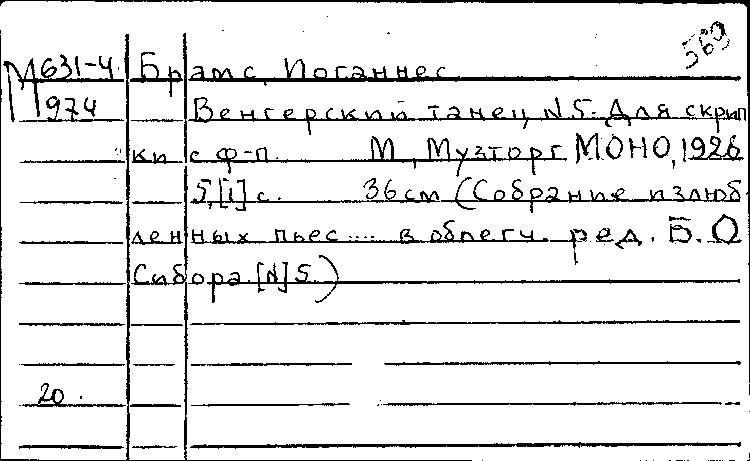 569
М 631-4 Брамс, Иоганнес
974 Венгерский танец N.5. Для скрип
ки с ф-п. М., Музторг МОНО, 1926
5,[1] с. 36 см (Собрание излюб
ленных пьес .... в облегч. ред. Б. О
Сибора. [N] 5.)
20.